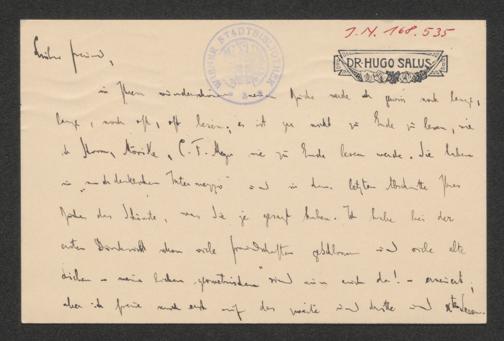 I. N. 168.535
WIENER STADTBIBLIOTHEK
DR. HUGO SALUS
Lieber Freund,
in Ihrem wunderschönen neuen Buche werde ich gewiss noch lange,
lange, noch oft, oft lesen; es ist gar nicht zu Ende zu lesen, wie
ich Storm, Mörike, C. F. Meyer nie zu Ende lesen werde. Sie haben
im „nachdenklichen Intermezzo" und in dem letzten Abschnitte Ihres
Buches das Schönste, was Sie je gesagt haben. Ich habe bei der
ersten viele Freundschaften geschlossen und viele alte
– meine lieben sind nun auch da! – erneuert;
aber ich freue mich auch auf das zweite und dritte und xte Lesen.